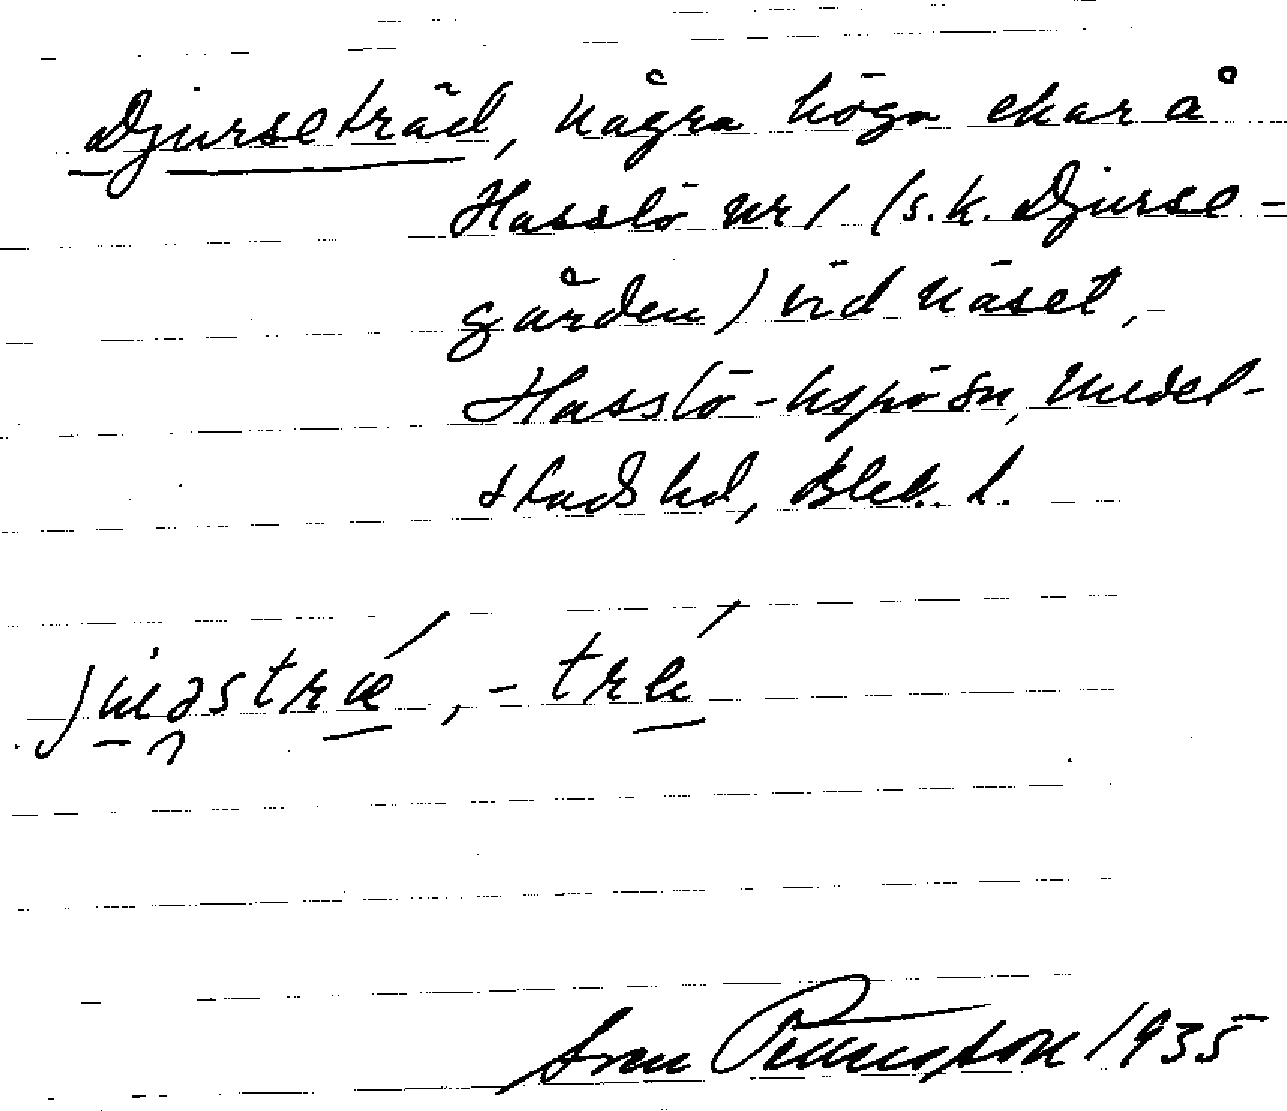 Djurseträd, några höga ekar å
Hasslö nr 1 (s.k. Djurse-
gården) vid näset,
Hasslö-kspösn, Medel-
stads hd, Blek. l.
juəstræ´, -tre´
Sven 1935